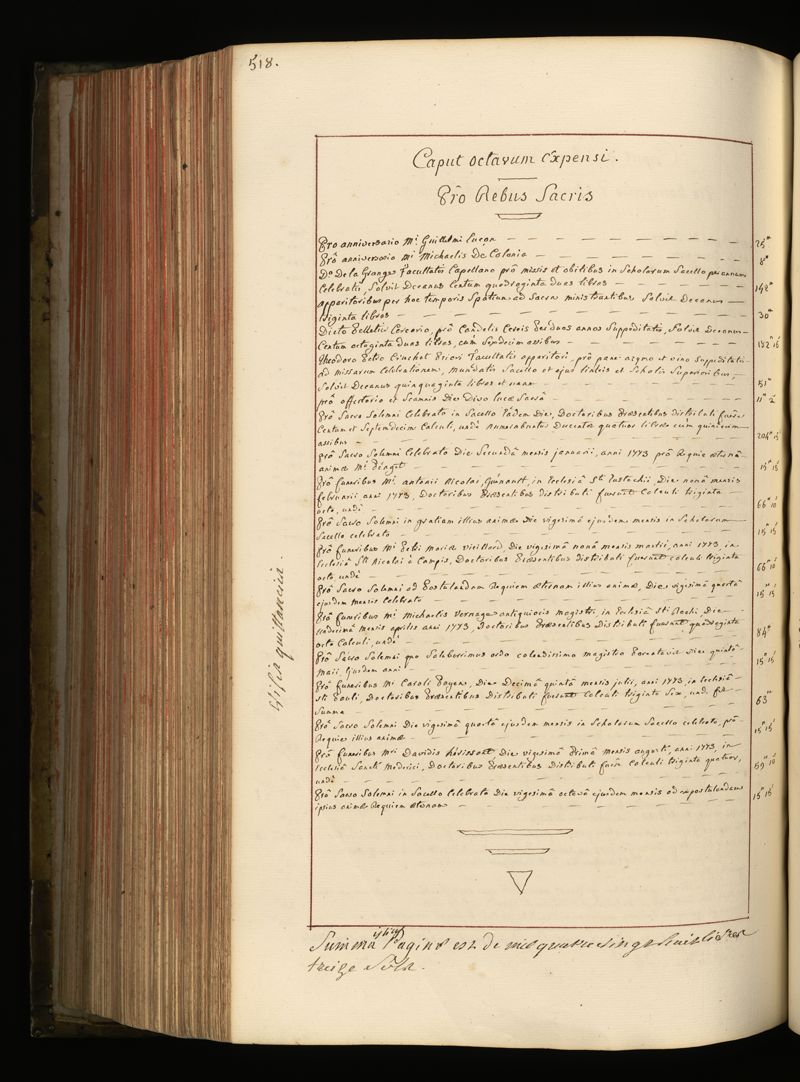 518.
Caput octavum Expensi.
Prô Rebus Sacris
Pro anniversario Mi. Guillelmi Luçon 25"
Prô anniversario Mi Michaelis De Colonia 8"
Do. De la Grange Facultatis Capellano prô missis et obitibus in Scholarum Sacello per annum
Celebratis, Solvit Decanus Centum quadraginta duas libras 142"
apparitoribus per hoc temporis Spatium ad Sacra ministrantibus Solvit Decanus
triginta libras 30"
Dicto Cereario, prô Candelis Cereis per duos annos Suppeditatis, Solvit Decanus
Centum octoginta duas libras, cum Sexdecim assibus 182" 16
Theodoro Petro Cruchot Priori Facultatis apparitori, prô pane azymo et vino Suppeditatis
ad missarum Celebrationem, mundatis Sacello et ejus linteis et Scholis Superioribus,
Solvit Decanus quinquaginta libras et unam 51"
prô offertorio et Scamnis Die Divo lucæ Sacrâ 11" 2
Prô Sacro Solemni Celebrato in Sacello Eâdem Die, Doctoribus Præsentibus distributi fuere
Centum et Septemdecim Calculi, undè numerabuntur Ducentæ quatuor libræ cum quindecim
assibus 204" 15
Prô Sacro Solemni Celebrato Die Secundâ mensis januarii, anni 1773 prô Requie æternâ
animæ Mi. 15" 15
Prô funeribus Mi. antonii Nicolai Guenault, in Ecclesiâ Sti Eustachii, Die nonâ mensis
februarii anni 1773, Doctoribus Præsentibus distributi fuerunt Calculi triginta
octo, undè 66" 10
Prô Sacro Solemni in gratiam illius animæ Die vigesimâ ejusdem mensis in Scholarum
Sacello celebrato 15" 15
Prô funeribus Mi. Mariæ vieillard, Die vigesimâ nonâ mensis martii, anni 1773, in
Ecclesiâ Sti Nicolai à Campis, Doctoribus Præsentibus distributi fuerunt calculi triginta
octo undè 66" 10
Prô Sacro Solemni ad Postulandam Requiem æternam illius animæ, Die vigesimâ quartâ
ejusdem mensis Celebrato 15" 15
Prô funeribus Mi. Michaelis Vernage antiquioris magistri, in Ecclesiâ Sti Rochi, Die
mensis aprilis anni 1773, Doctoribus Præsentibus Distributi fuerunt quadraginta
octo Calculi, undè 84"
Prô Sacro Solemni quo Saluberrimus ordo colendissimo magistro Parentavit Die quintâ
Maii Ejusdem anni 15" 15
Prô funeribus Mi Caroli Payen, Die Decimâ quintâ mensis julii, anni 1773, in Ecclesiâ
Sti Pauli, Doctoribus Præsentibus Distributi fuerunt Calculi triginta Sex, undè fit
Summa 63"
Prô Sacro Solemni Die vigesimâ quartâ ejusdem mensis in Scholarum Sacello celebrato, prô
Requie illius animæ 15" 15
Prô funeribus Mi. Davidis hérissant Die vigesimâ Primâ mensis augusti, anni 1773, in
Ecclesiâ Sancti Mederici, Doctoribus Præsentibus Distributi fuere Calculi triginta quatuor,
undè 59" 10
Prô Sacro Solemni in Sacello Celebrato Die vigesimâ octavâ ejusdem mensis ad expostulandam
ipsius animæ Requiem æternam 15" 15
Visa quittanciâ.
Summa istius Paginæ est de mil quatre vingt huit livres
treize sols.